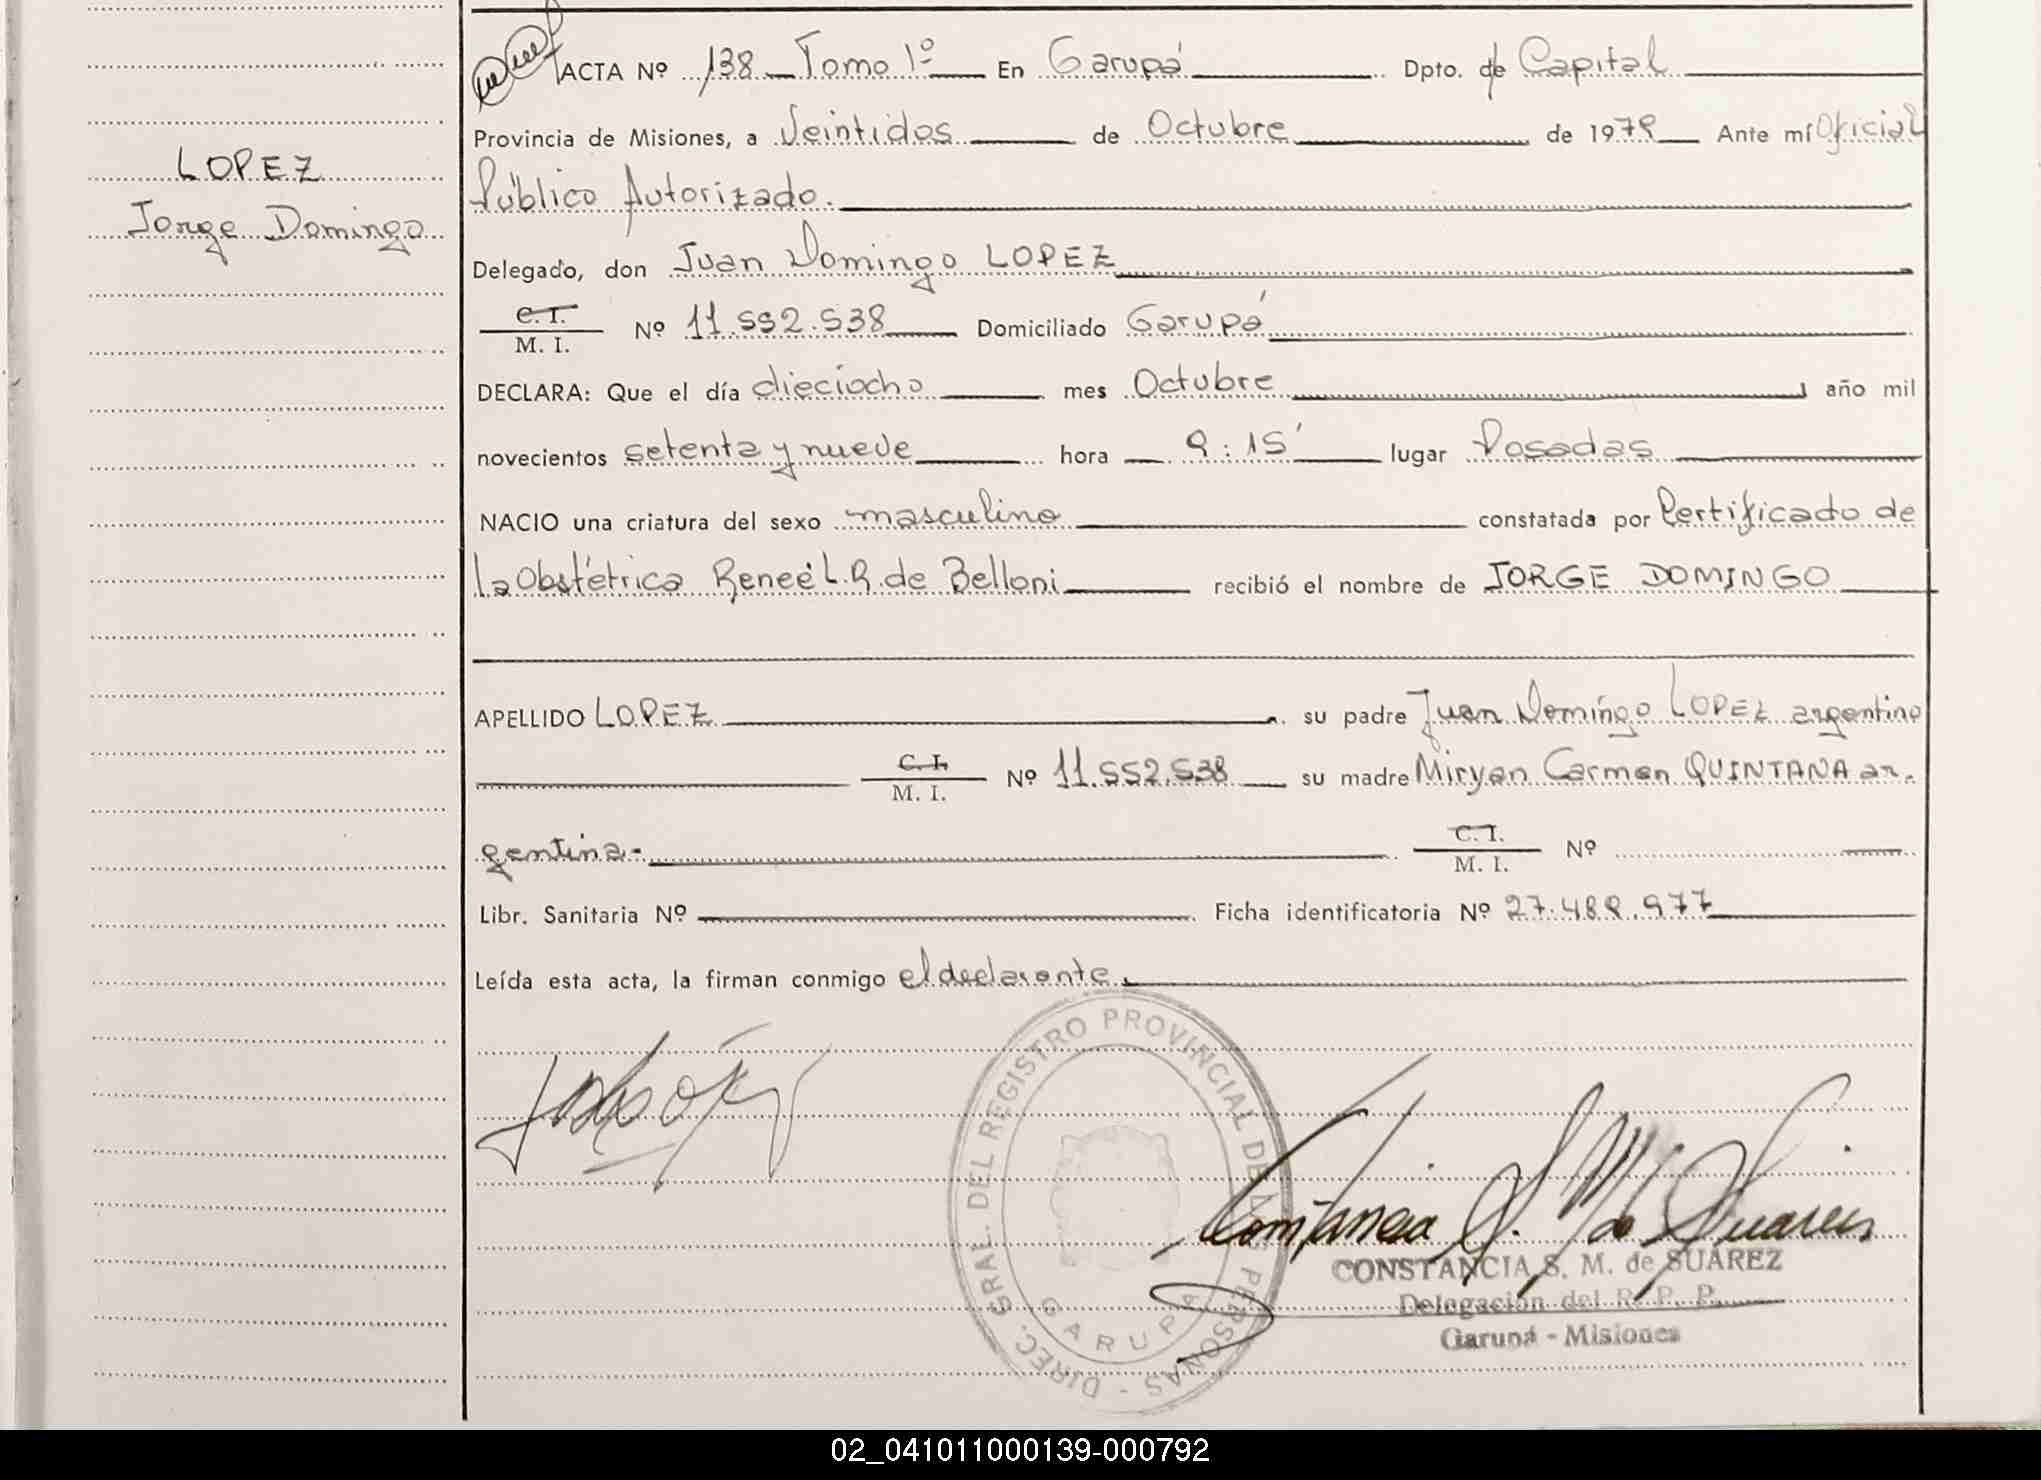 LOPEZ
Jorge Domingo
ACTA Nº 138 Tomo 1º En Garupá Dpto. de Capital
Provincia de Misiones, a Veintidos de Octubre de 1979 Ante mí Oficial
Público Autorizado.
Delegado, don Juan Domingo LOPEZ
C. I.
M. I. Nº 11.552.538 Domiciliado Garupá
DECLARA: Que el día dieciocho mes Octubre año mil
novecientos setenta y nueve hora 9:15' lugar Posadas
NACIO una criatura del sexo masculino constatada por Certificado de
la Obstétrica Reneé L.R. de Belloni recibió el nombre de JORGE DOMINGO
APELLIDO LOPEZ su padre Juan Domingo LOPEZ argentino
C. I.
M. I. Nº 11.552.538 su madre Miryan Carmen QUINTANA ar-
gentina.-
C. I.
M. I. Nº
Libr. Sanitaria Nº Ficha identificatoria Nº 27.489.977
Leída esta acta, la firman conmigo el declarante.
DIREC. GRAL. DEL REGISTRO PROVINCIAL DE LAS PERSONAS -
GARUPA
Constancia S. M. de Suarez
CONSTANCIA S. M. de SUÁREZ
Delegación del R. P. P.
Garupá - Misiones
02_041011000139-000792